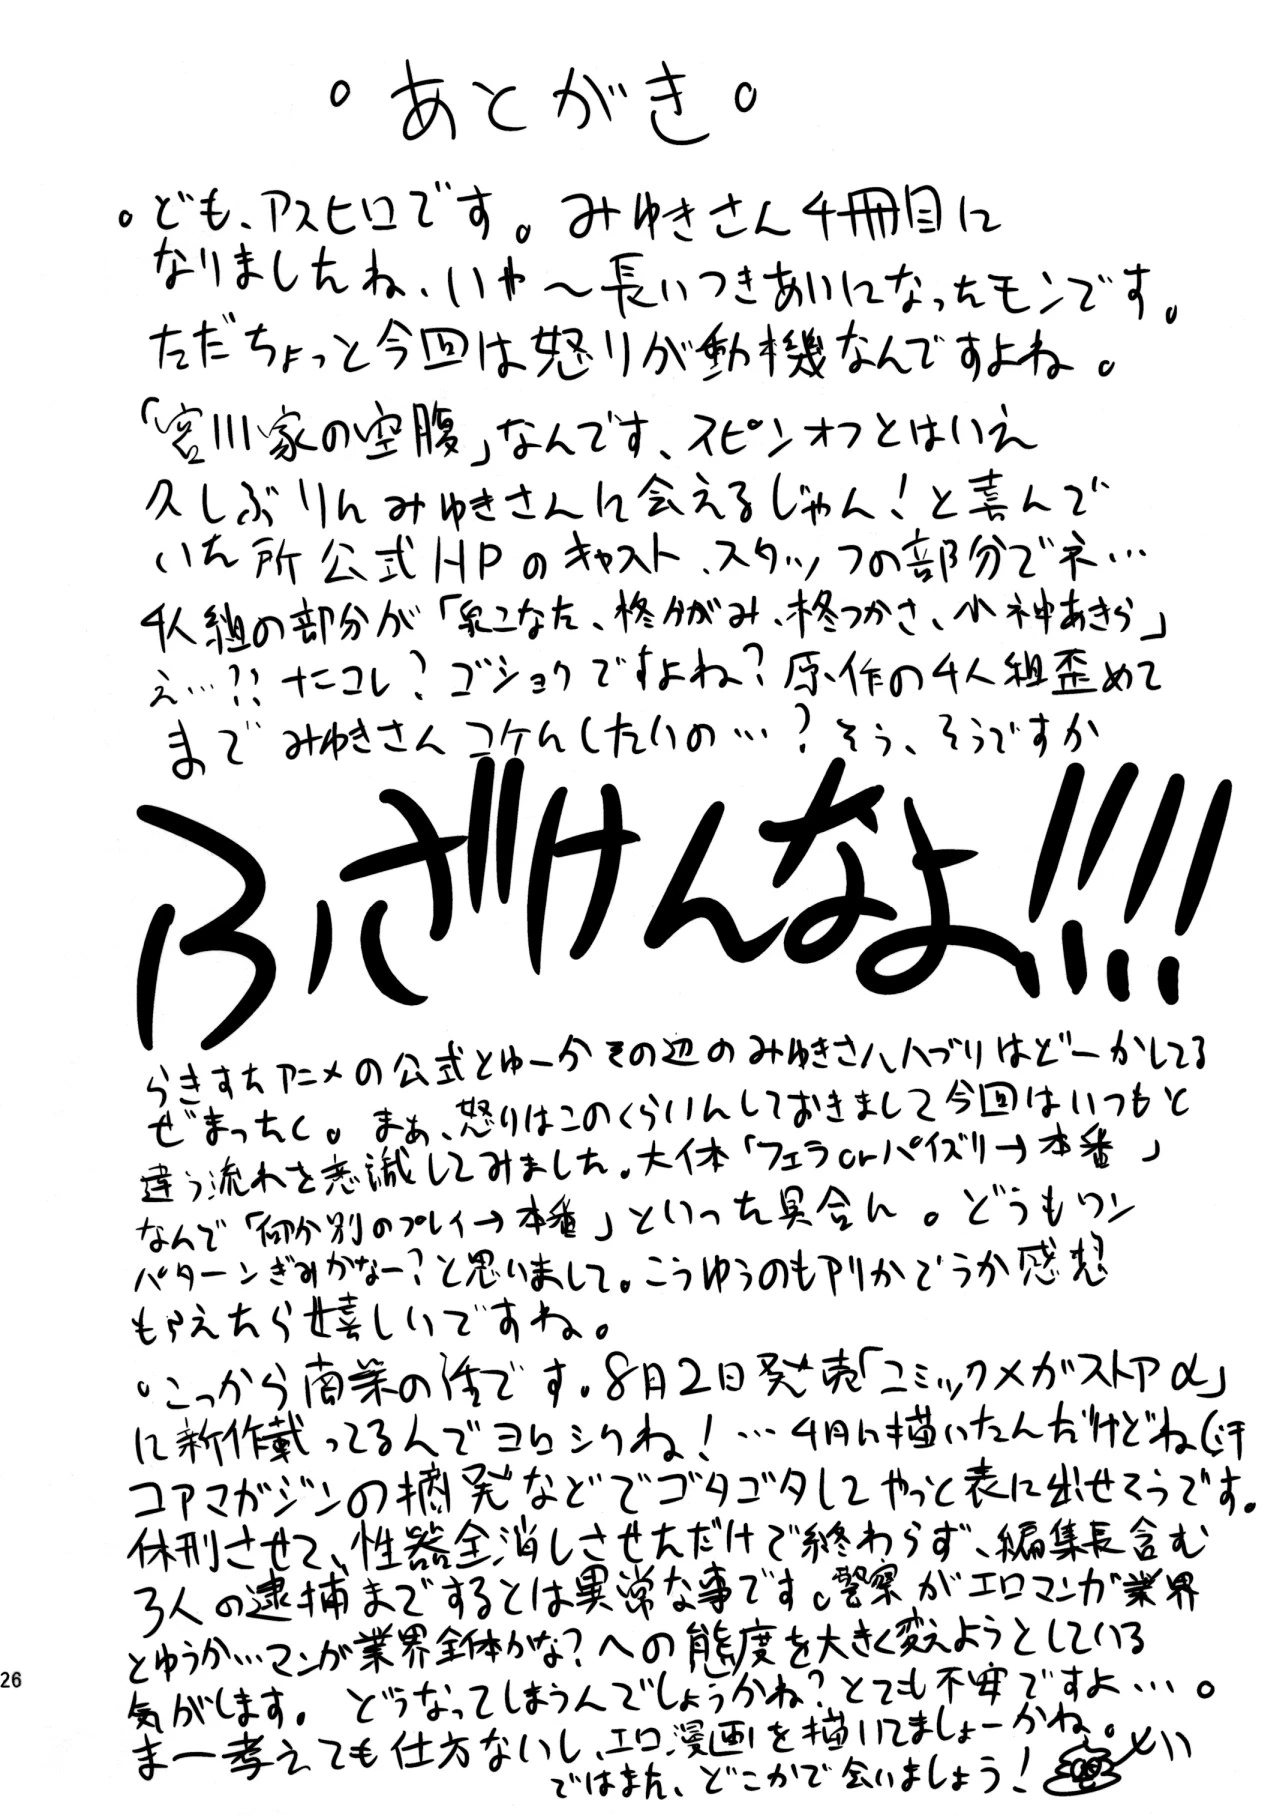 。あとがき。
。ども、アスヒロです。みゆきさん4冊目に
なりましたね、いや～長いつきあいになったモンです。
ただちょっと今回は怒りが動機なんですよね。
「宮川家の空腹」なんです、スピンオフとはいえ
久しぶりにみゆきさんに会えるじゃん!と喜んで
いた所公式HPのキャスト、スタッフの部分でネ…
4人組の部分が「泉こなた、柊かがみ、柊つかさ、小神あきら」
え…?? ナニコレ? ゴショクですよね? 原作の4人組歪めて
までみゆきさんコケにしたいの…? そう、そうですか
ふざけんなよ!!!!
らきすたアニメの公式とゆーかその辺のみゆきさんハブりはどーかしてる
ぜまったく。まぁ、怒りはこのくらいにしておきまして今回はいつもと
違う流れを意識してみました。大体「フェラorパイズリ→本番」
なんで「何か別のプレイ→本番」といった具合に。どうもワン
パターンぎみかなー?と思いまして。こうゆうのもアリかどうか感想
もらえたら嬉しいですね。
・こっから商業の話です。8月2日発売「コミックメガストアα」
に新作載ってるんでヨロシクね! …4月に描いたんだけどね(汗
コアマガジンの摘発などでゴタゴタしてやっと表に出せそうです。
休刊させて、性器全消しさせただけで終わらず、編集長含む
3人の逮捕までするとは異常な事です。警察がエロマンガ業界
とゆうか…マンガ業界全体かな? への態度を大きく変えようとしている
気がします。どうなってしまうんでしょうかね? とても不安ですよ…。
まー考えても仕方ないし、エロ漫画を描いてましょーかね。
ではまた、どこかで会いましょう!
26